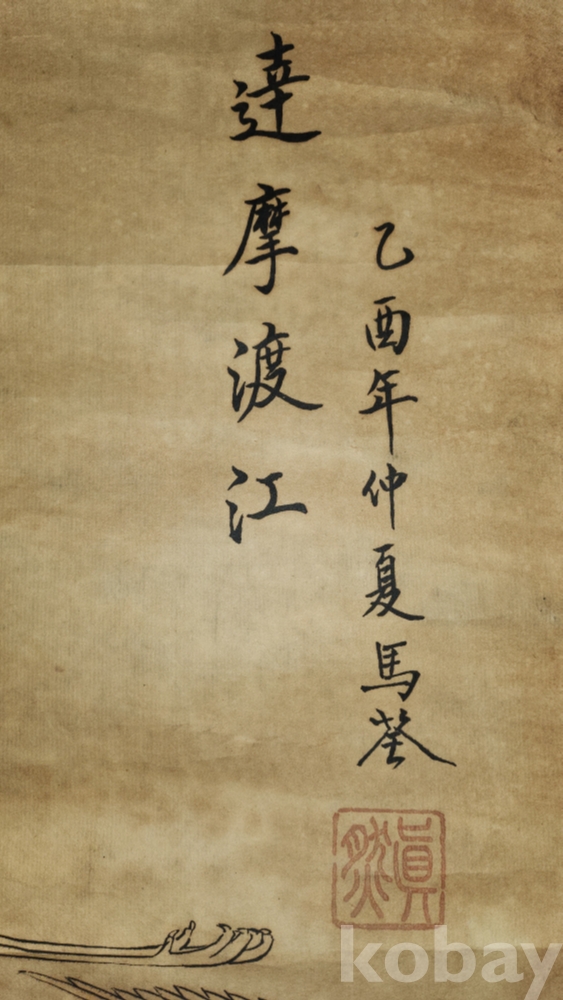 達摩渡江
乙酉年仲夏馬荃
眞然
kobay